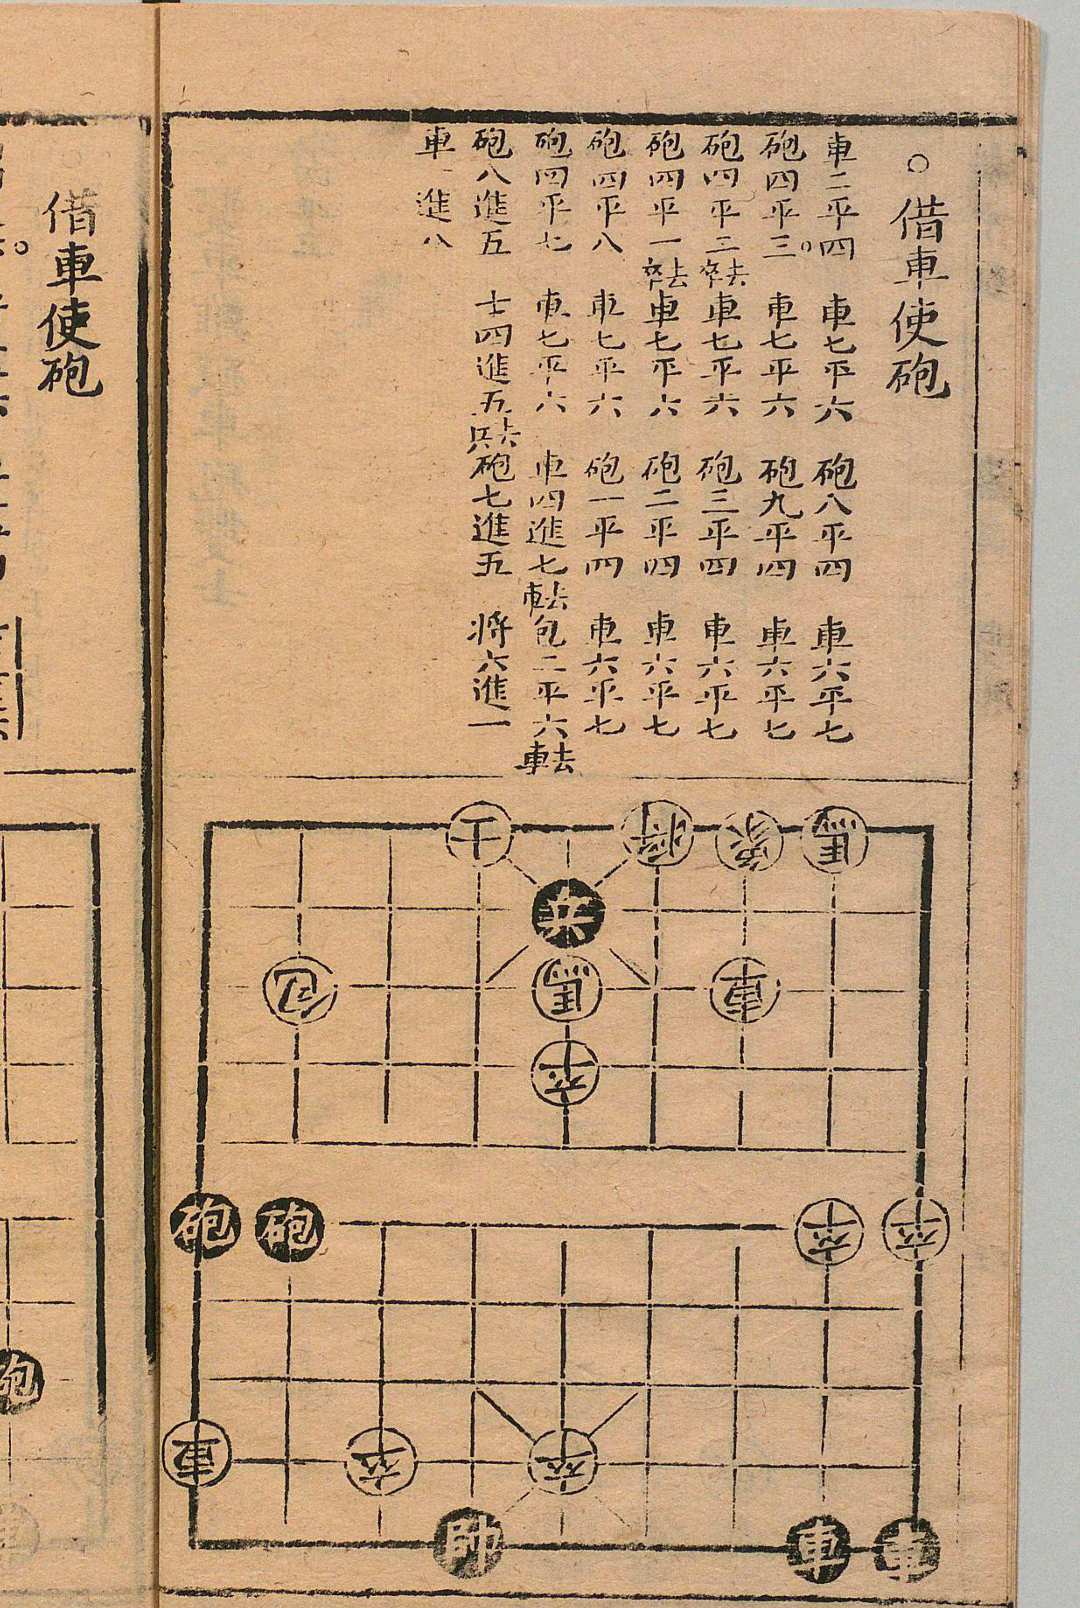 ○借車使砲
車二平四　車七平六　砲八平四　車六平七
砲四平三○　車七平六　砲九平四　車六平七
砲四平二去卒　車七平六　砲三平四　車六平七
砲四平一去卒　車七平六　砲二平四　車六平七
砲四平八　車七平六　砲一平四　車六平七
砲四平七　車七平六　車四進七去車　包二平六去車
砲八進五　士四進五去兵　砲七進五　将六進一
車一進八
士　将　象　馬
兵
包　馬　車
卒
砲　砲　卒　卒
車　卒　卒
帥　車　車
借車使砲
砲